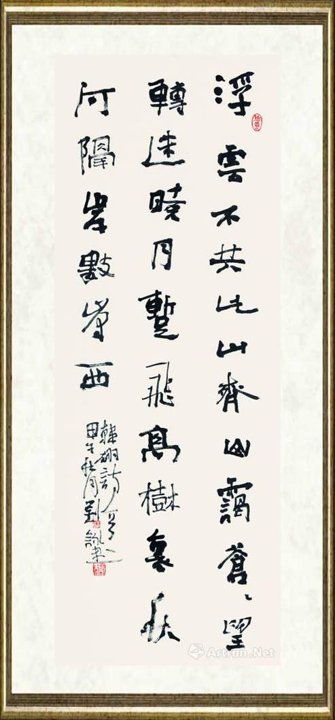 浮雲不共此山齊山靄蒼〻望
轉迷曉月暫飛高樹裏秋
河隔數峯西
韓翃詩
甲午秋月劉
Artron.Net